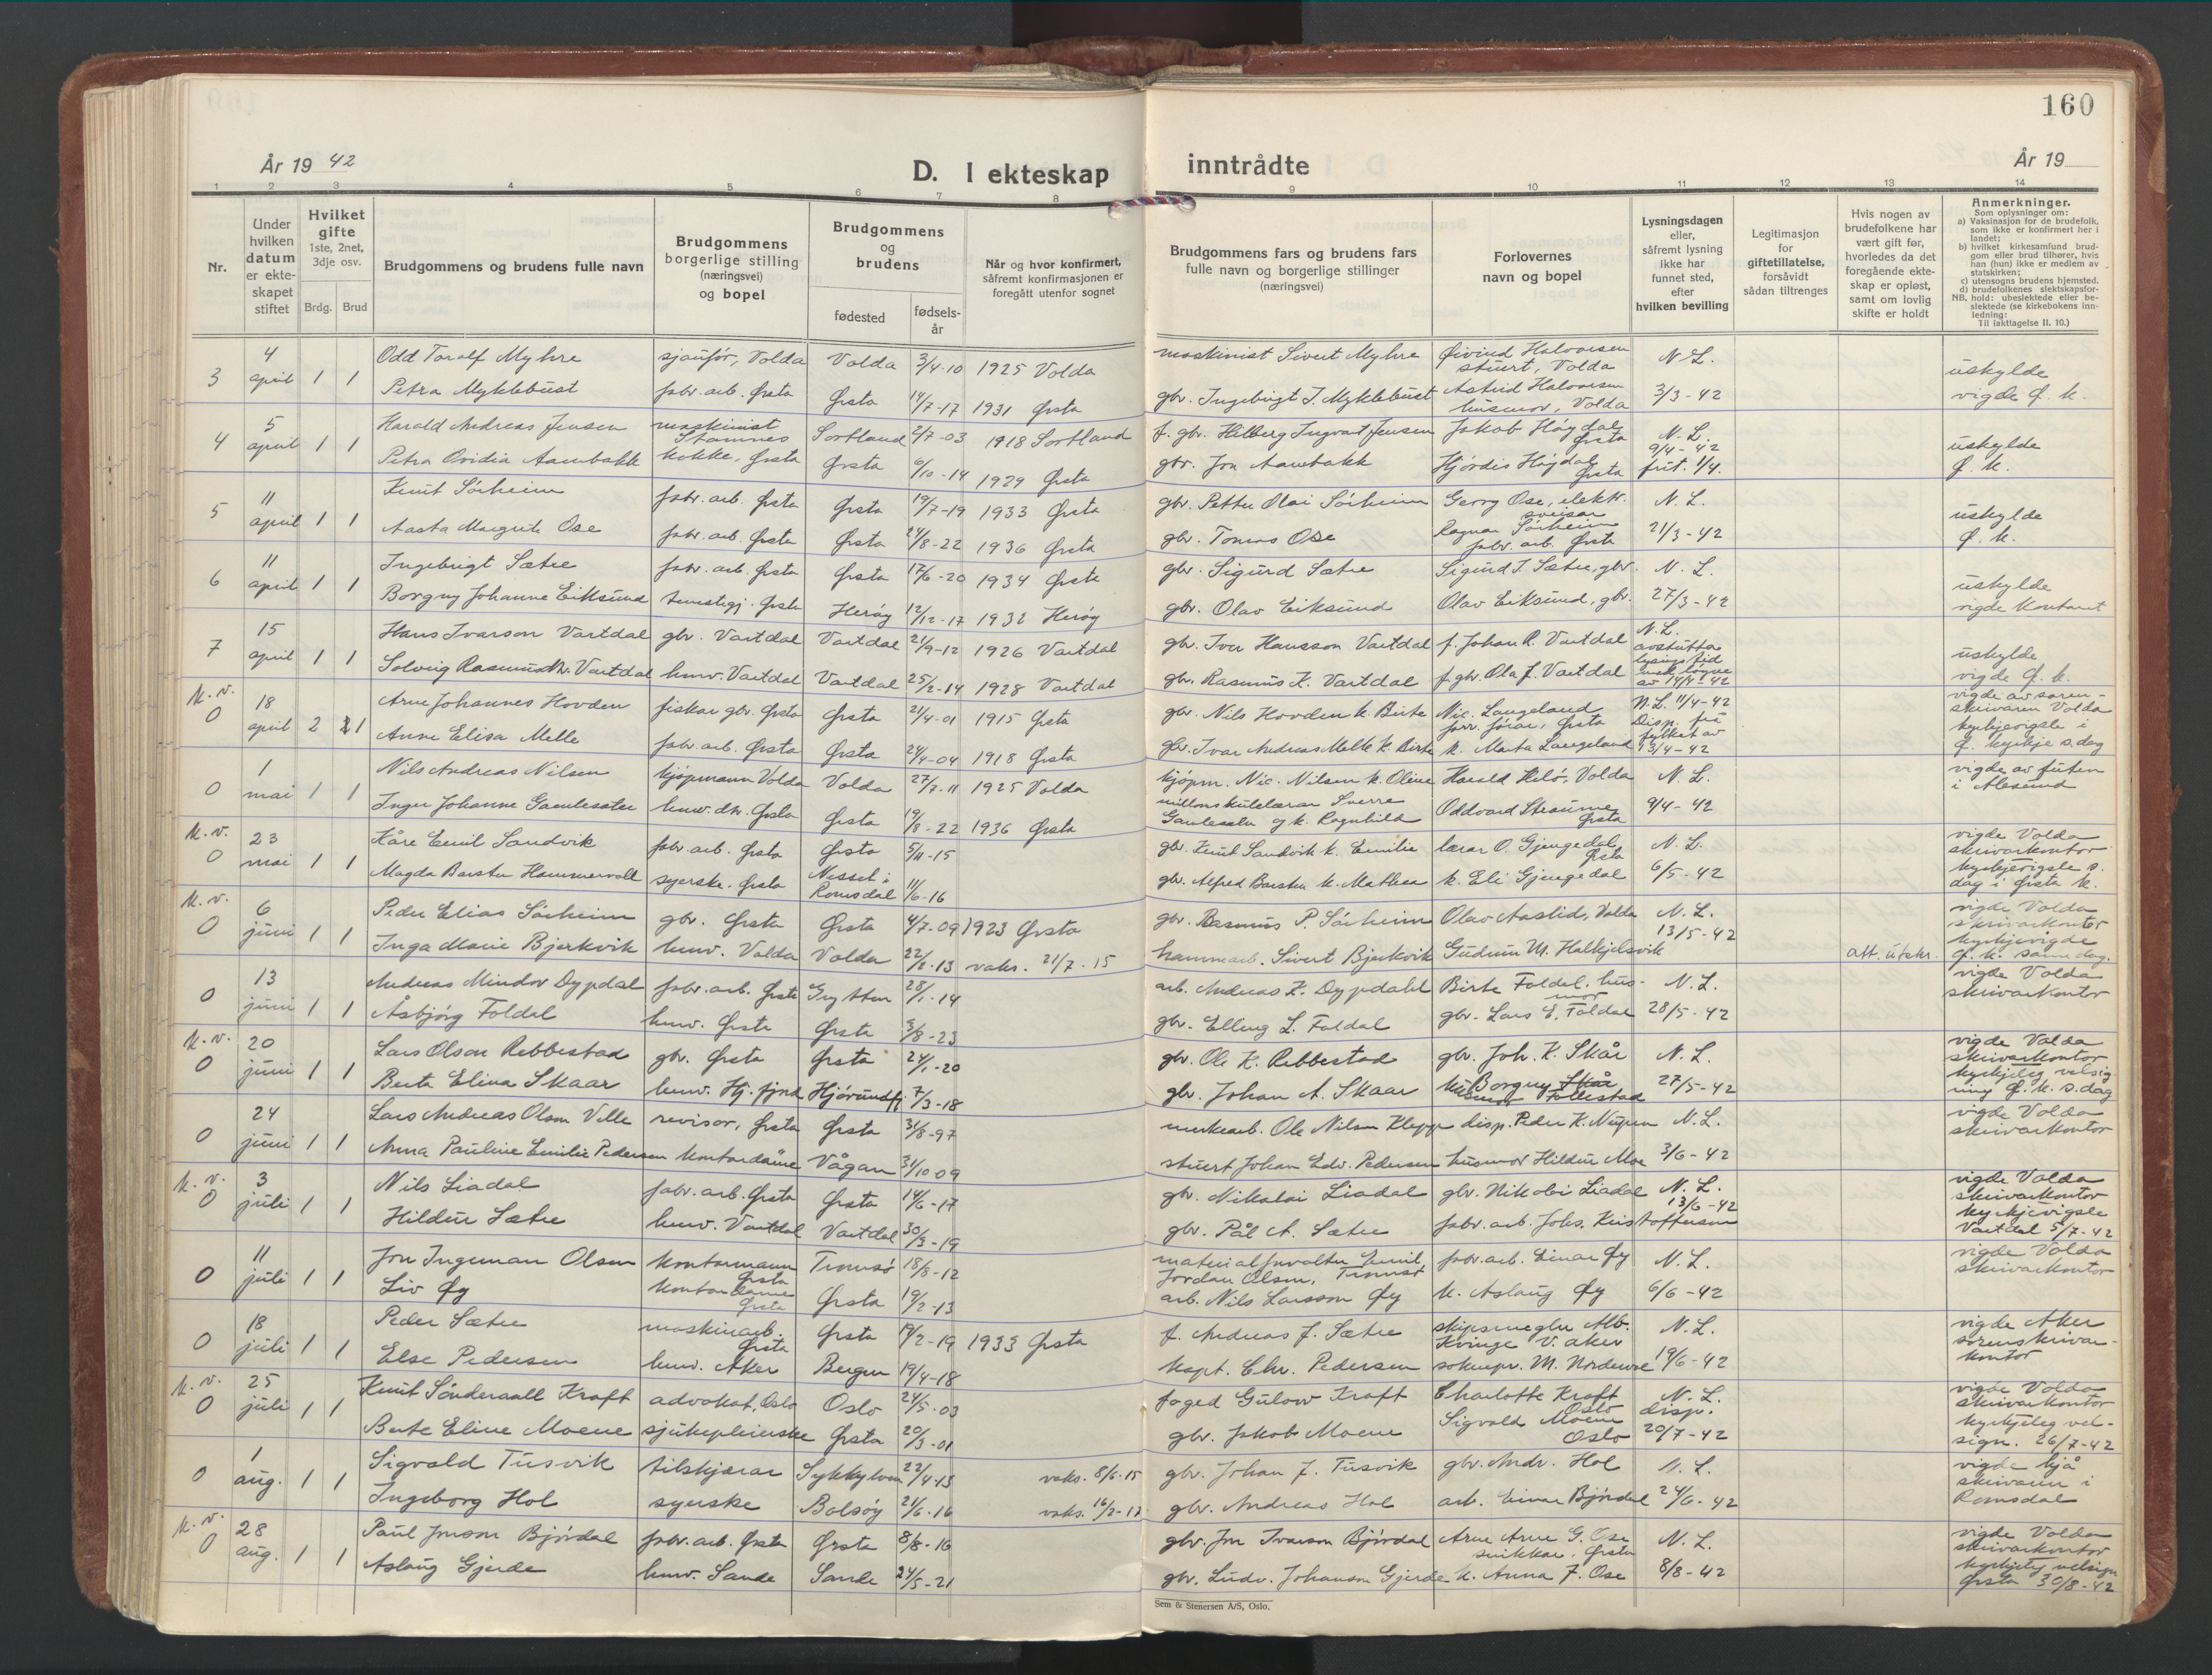 160
År 19 42
D. I ekteskap
inntrådte
År 19
1 2 3 4 5 6 7 8 9 10 11 12 13 14
Nr.
Under hvilken datum er ekteskapet stiftet
Hvilket gifte 1ste, 2net, 3dje osv.
Brdg. Brud
Brudgommens og brudens fulle navn
Brudgommens borgerlige stilling (næringsvei) og bopel
Brudgommens og brudens
fødested
fødselsår
Når og hvor konfirmert, såfremt konfirmasjonen er foregått utenfor sognet
Brudgommens fars og brudens fars fulle navn og borgerlige stillinger (næringsvei)
Forlovernes navn og bopel
Lysningsdagen eller, såfremt lysning ikke har funnet sted, efter hvilken bevilling
Legitimasjon for giftetillatelse, forsåvidt sådan tiltrenges
Hvis nogen av brudefolkene har vært gift før, hvorledes da det foregående ekteskap er opløst, samt om lovlig skifte er holdt
Anmerkninger.
Som oplysninger om:
a) Vaksinasjon for de brudefolk, som ikke er konfirmert her i landet;
b) hvilket kirkesamfund brudgom eller brud tilhører, hvis han (hun) ikke er medlem av statskirken;
c) utensogns brudens hjemsted.
d) brudefolkenes slektskapsforhold: ubeslektede eller beslektede (se kirkebokens innledning:
NB.
Til iakttagelse II. 10.)
3 4 april 1 1 Odd Toralf Myhre sjaufør, Volda Volda 3/4-10 1925 Volda maskinist Sivert Myhre Øivind Halvorsen stuert, Volda N.L.
Petra Myklebust fabr. arb. Ørsta Ørsta 14/7-17 1931 Ørsta gbr. Ingebrigt J. Myklebust Astrid Halvorsen husmor, Volda 3/3-42 uskylde vigde Ø. k.
4 5 april 1 1 Harald Andreas Jensen maskinist Stamnes Sortland 2/7-03 1918 Sortland f. gbr. Hilberg Ingvart Jensen Jakob Høydal Ørsta N.L.
Petra Ovidia Aambakk kokke, Ørsta Ørsta 6/10-14 1929 Ørsta gbr. Jon Aambakk Hjørdis Høydal Ørsta 9/4-42 frit. 1/4. uskylde Ø. k.
5 11 april 1 1 Knut Sørheim fabr. arb. Ørsta Ørsta 19/7-19 1933 Ørsta gbr. Petter Olai Sørheim Georg Ose, elektr. sveisar N.L.
Aasta Margrete Ose fabr. arb. Ørsta Ørsta 24/8-22 1936 Ørsta gbr. Tomas Ose Ragnar Sørheim fabr. arb. Ørsta 21/3-42 uskylde Ø. k.
6 11 april 1 1 Ingebrigt Sætre fabr. arb. Ørsta Ørsta 17/6-20 1934 Ørsta gbr. Sigurd Sætre Sigurd T. Sætre, gbr. N.L.
Borgny Johanne Eiksund tenestegj. Ørsta Herøy 12/12-17 1932 Herøy gbr. Olav Eiksund Olav Eiksund, gbr. 27/3-42 uskylde vigde Kontoret
7 15 april 1 1 Hans Ivarson Vartdal gbr. Vartdal Vartdal 21/9-12 1926 Vartdal gbr. Iver Hansson Vartdal f. Johan R. Vartdal N.L. avstutta lysingstid
Solveig Rasmusdtr. Vartdal husv. Vartdal Vartdal 25/2-14 1928 Vartdal gbr. Rasmus K. Vartdal f. gbr. Ola J. Vartdal av 14/4-42 uskylde vigde Ø. k.
K. v. 0 18 april 2 1 Arne Johannes Hovden fiskar gbr. Ørsta Ørsta 21/4-01 1915 Ørsta gbr. Nils Hovden k. Birte Nic. Langeland forr. fører, Ørsta N.L. 11/4-42
Anne Elisa Melle fabr. arb. Ørsta Ørsta 24/4-04 1918 Ørsta gbr. Ivar Andreas Melle k. Birte k. Marta Langeland Disp. frå fylket av 13/4-42 vigde av sorenskrivaren Volda kyrkjevigsle i Ø. kyrkje s. dag
0 1 mai 1 1 Nils Andreas Nilsen kjøpmann Volda Volda 27/7-11 1925 Volda kjøpm. Nic. Nilsen k. Oline Harald Helø, Volda N.L.
Inger Johanne Gamlesæter husv. dtr. Ørsta Ørsta 19/8-22 1936 Ørsta millomskulelærar Sverre Gamlesæter og k. Ragnhild Oddvard Straume Ørsta 9/4-42 vigde av futen i Ålesund
K. v. 0 23 mai 1 1 Kåre Emil Sandvik fabr. arb. Ørsta Ørsta 5/11-15 gbr. Knut Sandvik k. Emilie lærar O. Gjengedal Ørsta N.L.
Magda Barsten Hammervoll syerske. Ørsta Nesset i Romsdal 11/6-16 gbr. Alfred Barsten k. Mathea k. Eli Gjengedal 6/5-42 vigde Volda skrivarkontor kyrkjevigsle s. dag i Ørsta k.
K. v. 0 6 juni 1 1 Peder Elias Sørheim gbr. Ørsta Ørsta 4/7-09 1923 Ørsta gbr. Rasmus P. Sørheim Olav Aaslid, Volda N.L.
Inga Marie Bjerkvik husv. Volda Volda 22/2-13 vaks. 21/7-15 hammarb. Sivert Bjerkvik Gudrun M. Halkjelsvik 13/5-42 att. utskr. vigde Volda skrivarkontor kyrkjevigde Ø. k. same dag.
0 13 juni 1 1 Andreas Mindor Dypdal fabr. arb. Ørsta Grytten 28/1-14 arb. Andreas K. Dypdahl Birte Foldal. husmor N.L.
Åsbjørg Foldal husv. Ørsta Ørsta 3/8-23 gbr. Elling L. Foldal gbr. Lars E. Foldal 28/5-42 vigde Volda skrivarkontor
K. v. 0 20 juni 1 1 Lars Olson Rebbestad gbr. Ørsta Ørsta 24/1-20 gbr. Ole K. Rebbestad gbr. Joh. K. Skår N.L.
Berta Elina Skaar husv. Hj. fjord Hjørundfj. 7/3-18 gbr. Johan A. Skaar Borgny Skår Follestad 27/5-42 vigde Volda skrivarkontor kyrkjeleg velsigning Ø. k. s. dag
0 24 juni 1 1 Lars Andreas Olsen Velle revisor, Ørsta Ørsta 31/8-97 murkearb. Ole Nilsen Klepp disp. Peder K. Nupen N.L.
Anna Pauline Emilie Pedersen kontordame Vågan 31/10 09 stuert Johan Edv. Pedersen husmor Hildur Moe 3/6-42 vigde Volda skrivarkontor
K. v. 0 3 juli 1 1 Nils Liadal fabr. arb. Ørsta Ørsta 14/6-17 gbr. Nikolai Liadal gbr. Nikolai Liadal N.L.
Hildur Sætre husv. Vartdal Vartdal 30/3-19 gbr. Pål A. Sætre fabr. arb. Johs. Kristoffersen 13/6-42 vigde Volda skrivarkontor kyrkjevigsle Vartdal 5/7-42
0 11 juli 1 1 Jon Ingeman Olsen kontormann Ørsta Tromsø 18/8-12 materialforvalter Emil Jordan Olsen, Tromsø fabr. arb. Einar Øy N.L.
Liv Øy kontordame Ørsta Ørsta 19/2-13 arb. Nils Larsson Øy k. Aslaug Øy 6/6-42 vigde Volda skrivarkontor
0 18 juli 1 1 Peder Sætre maskinarb. Ørsta Ørsta 19/2-19 1933 Ørsta f. Andreas J. Sætre skipsmegler Alb. Kvinge V. Aker N.L.
Else Pedersen husv. Aker Bergen 19/4-18 kapt. Chr. Pedersen soknepr. M. Norderve 19/6-42 vigde Aker sorenskrivarkontor
K. v. 0 25 juli 1 1 Knut Sønderaall Kraft advokat, Oslo Oslo 24/5-03 foged Gulow Kraft Charlotte Kraft Oslo N.L. disp.
Berte Eline Moene sjukepleierske Ørsta 20/3-01 gbr. Jakob Moene Sigvald Moene Oslo 20/7-42 vigde Volda skrivarkontor kyrkjeleg velsign. 26/7-42
0 1 aug. 1 1 Sigvald Tusvik tilskjærar Sykkylven 22/4-15 vaks. 8/6-15 gbr. Johan J. Tusvik gbr. Andr. Hol N.L.
Ingeborg Hol syerske Bolsøy 24/6-16 vaks. 16/2-17 gbr. Andreas Hol arb. Einar Bjørdal 24/6-42 vigde hjå skrivaren i Romsdal
K. v. 0 28 aug. 1 1 Paul Jonson Bjørdal fabr. arb. Ørsta Ørsta 8/8-16 gbr. Jon Ivarson Bjørdal Arne Arne G. Ose snikkar, Ørsta N.L.
Aslaug Gjerde husv. Sande Sande 24/5-21 gbr. Ludv. Johanson Gjerde k. Anna J. Ose 8/8-42 vigde Volda skrivarkontor kyrkjeleg velsign Ørsta 30/8-42
Sem & Stenersen A/S, Oslo.